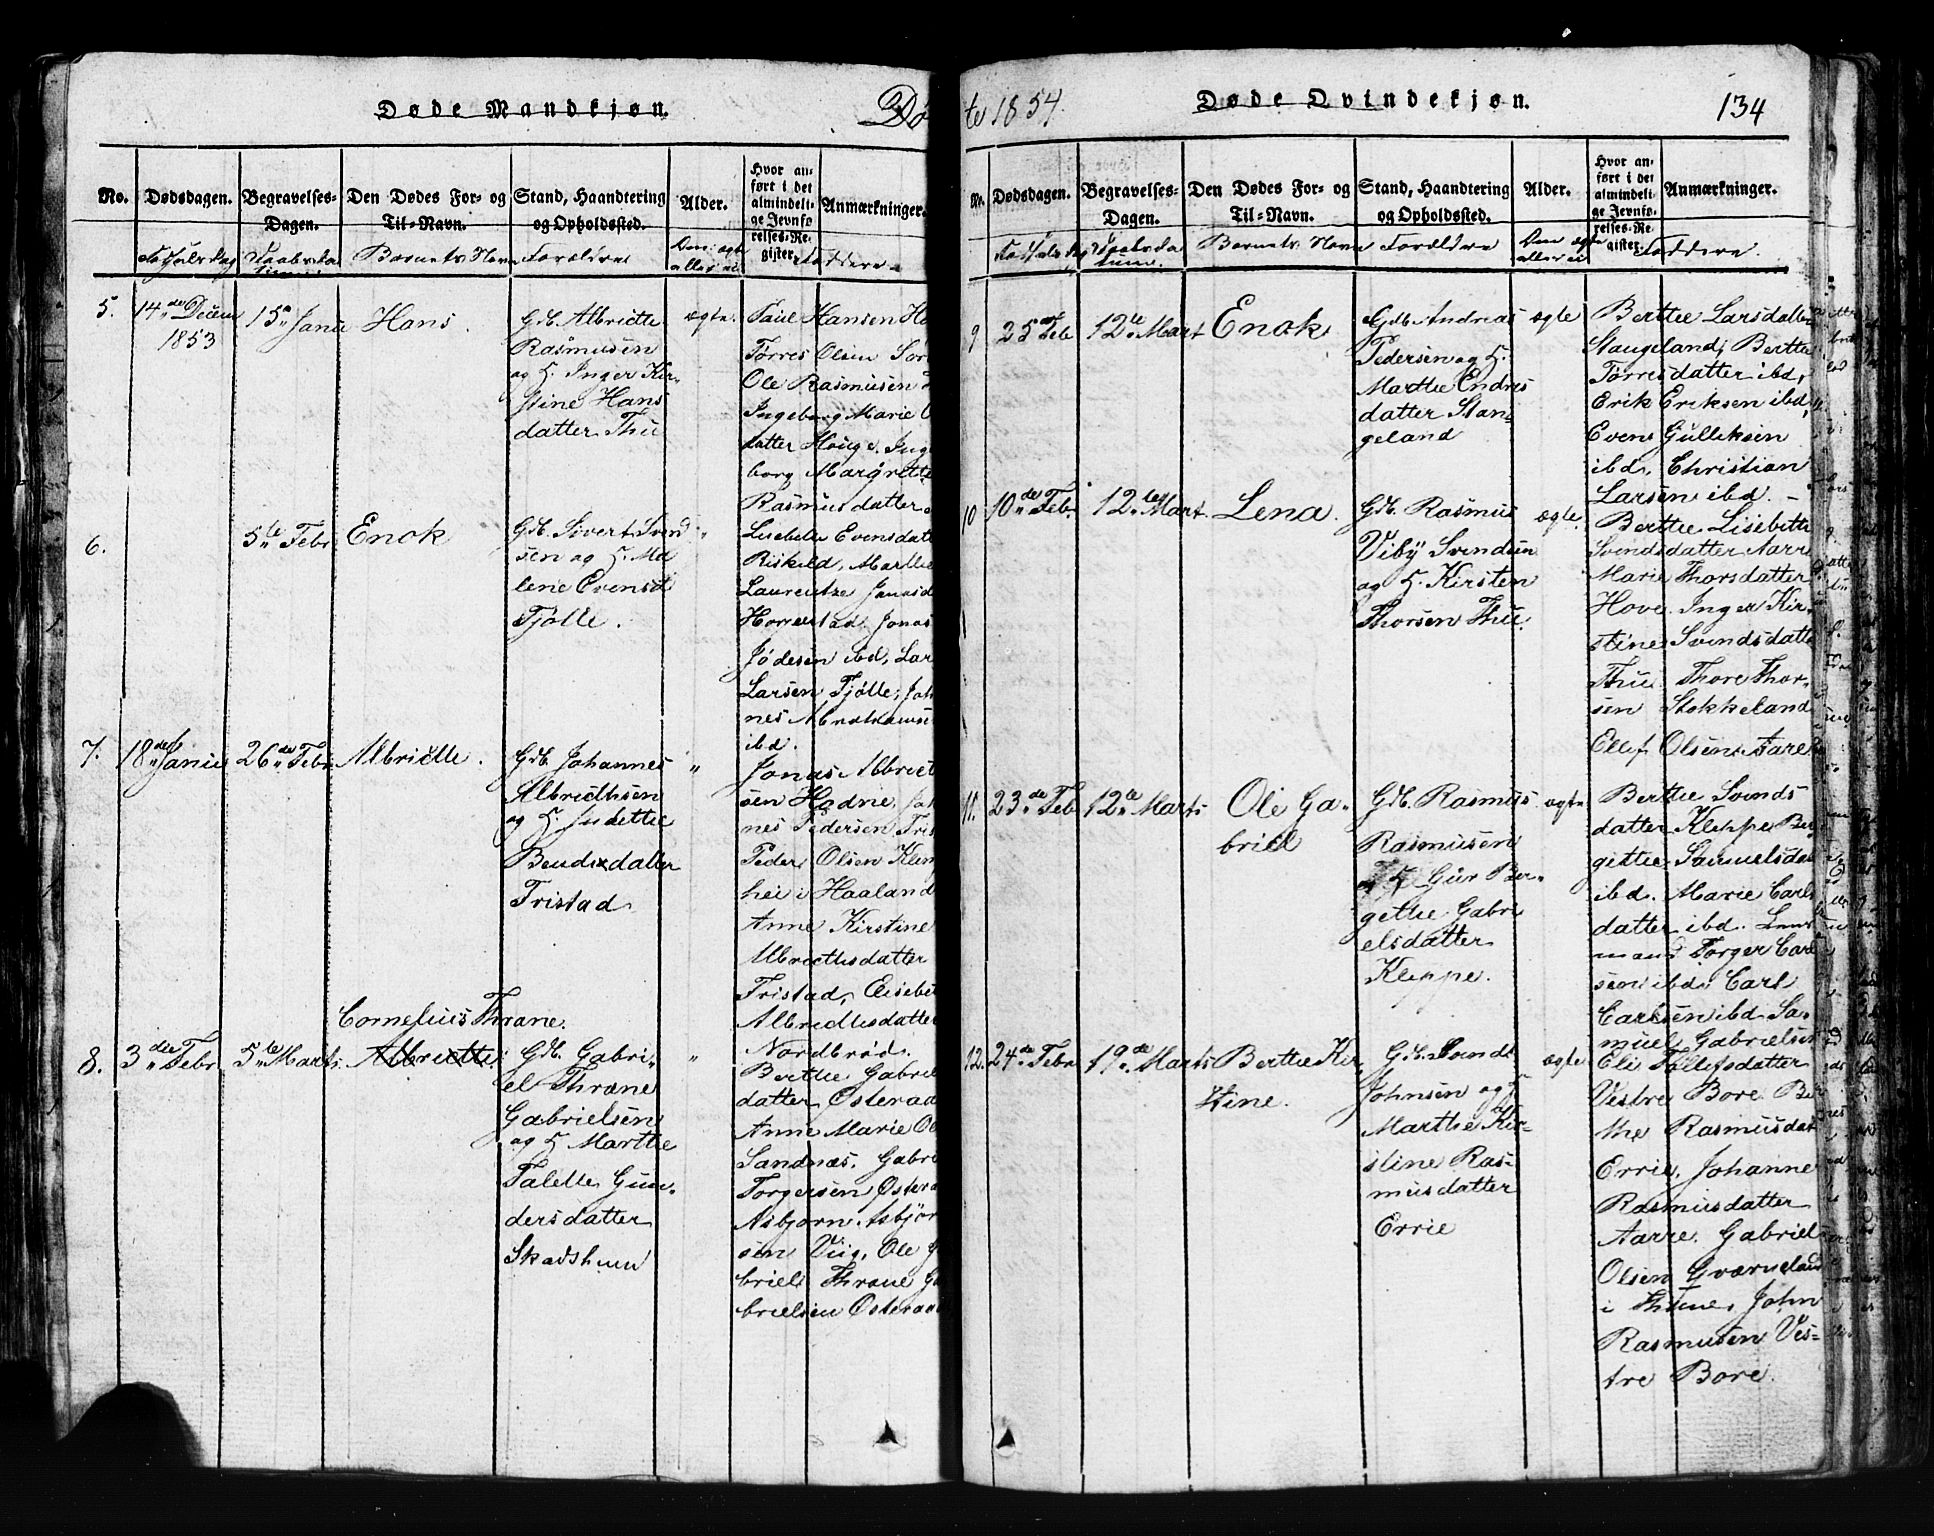 Døde Mandkjøn.
Dø
No.
Dødsdagen.
Begravelses-
Dagen.
Den Dødes For- og
Til-Navn.
Stand, Haandtering
og Opholdssted.
Alder.
Hvor an-
ført i det
almindeli-
ge Jevnfø-
relses-Re-
gister.
Anmærkninger.
Barnets Navn
Forældre
Faddere
5.
14de Decem
1853
15de Janu
Hans.
Gdb. Albrecthe
Rasmusen
og H. Inger Kir-
stine Hans
datter Thu
ægte.
Paul Hansen
Tørres Olsen
Ole Rasmusen
Ingeborg Marie
datter Houge. Inge
borg Margrette
Rasmusdatter
6.
5te Febr
Enok
Gdb. Sivert Svend
sen og H. Ma
lene Evensd
Tjøtte.
"
Lisebette Evensdatt
Riskeld, Marthe
Laurentze Jonasd
Horrestad, Jonas
Jødesen ibd, Lar
Larsen Tjøtte, Joh
nes Abrahamse
ibd.
7.
18de Janu
26de Febr
Albricthe.
Gdb. Johannes
Albricthsen
og H. Judithe
Bendixdatter
Tristad
"
Jonas Albrict
sen Hadne, Joh
nes Pedersen Trist
Peder Olsen Klep
hei i Haaland
Anne Kirstine
Albricthsdatter
Tristad, Elisebet
Albricthsdatter
Nordbrød.
8.
3die Febr
5te Marts
Cornelius Thrane.
Albricthe
Gdb. Gabri-
el Thrane
Gabrielsen
og H. Marthe
Talette Gun-
dersdatter
Skadsheim
"
Berthe Gabriel
datter Østeraad
Anne Marie Ol
Sandnæs, Gabri
Torgersen Østera
Asbjørn Asbjør
sen Viig, Ole
briels Thrane Ga
brielsen Østeraad
te 1854.
Døde Qvindekjøn.
134
No.
Dødsdagen.
Begravelses-
Dagen.
Den Dødes For- og
Til-Navn.
Stand, Haandtering
og Opholdssted.
Alder.
Hvor an-
ført i det
almindeli-
ge Jevnfø-
relses-Re-
gister.
Anmærkninger.
Barnets Navn
Forældre
Faddere.
9
25de Feb
12te Mart
Enok
Gdb. Andreas
Pedersen og H.
Marthe Endres
datter Stan-
geland
ægte
Berthe Larsdatter
Stangeland, Berthe
Tørresdatter ibd,
Erik Eriksen ibd,
Even Gulleksen
ibd, Christian
Larsen ibd. -
10
10de Feb.
12te Mart.
Lena.
Gdb. Rasmus
Viby Svendsen
og H. Kirsten
Thorsen Thu.
ægte.
Berthe Lisebette
Svendsdatter Aarre
Marie Thorsdatter
Hove. Inger Kir-
stine Svendsdatte
Thu. Thore Thor-
sen Stokkeland
Ellef Olsen Aare
11.
23de Feb
12te Marts
Ole Ga-
briel
Gdb. Rasmus
Rasmusen
og H. Gur Ber-
gethe Gabri
elsdatter
Kleppe.
ægte
Berthe Svends
datter Kleppe Ber
githe Samuelsdat
ibd. Marie Carls
datter ibd. Lens
mand Torger Carl
sen ibd. Carl
Carlsen ibd Sa-
muel Gabrielsen
12.
24de Febr
19de Marts
Berthe Kir
stine.
Johnsen og H.
Marthe Kir-
stine Ras-
musdatter
Errie
ægte
Eli Tollefsdatter
Vestre Bore. Ber
the Rasmusdat
Errie. Johanne
Rasmusdatter
Aarre. Gabriel
Olsen Gværneland
i Thime, John
Rasmusen Ves-
tre Bore.